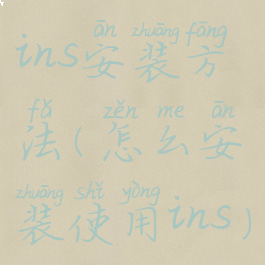 ān zhuāng fāng
ins安装方
fǎ zěn me ān
法(怎么安
zhuāng shǐ yòng
装使用ins)